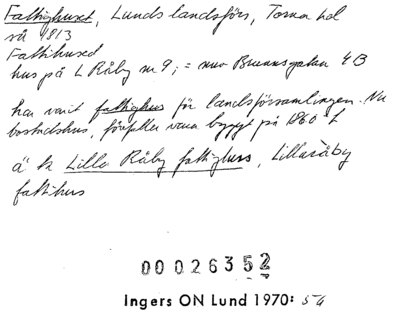 Fattighuset, Lunds landsförs, Torna hd
så 1813
Fattihused
hus på L Råby nr 9; = nuv Brunnsgatan 4 B
har varit fattighus för landsförsamlingen. Nu
bostadshus, förefaller vara byggt på 1860-t
ä k Lilla Råby fattighus, Lillaråby
fattihus
00026352
Ingers ON Lund 1970: 54